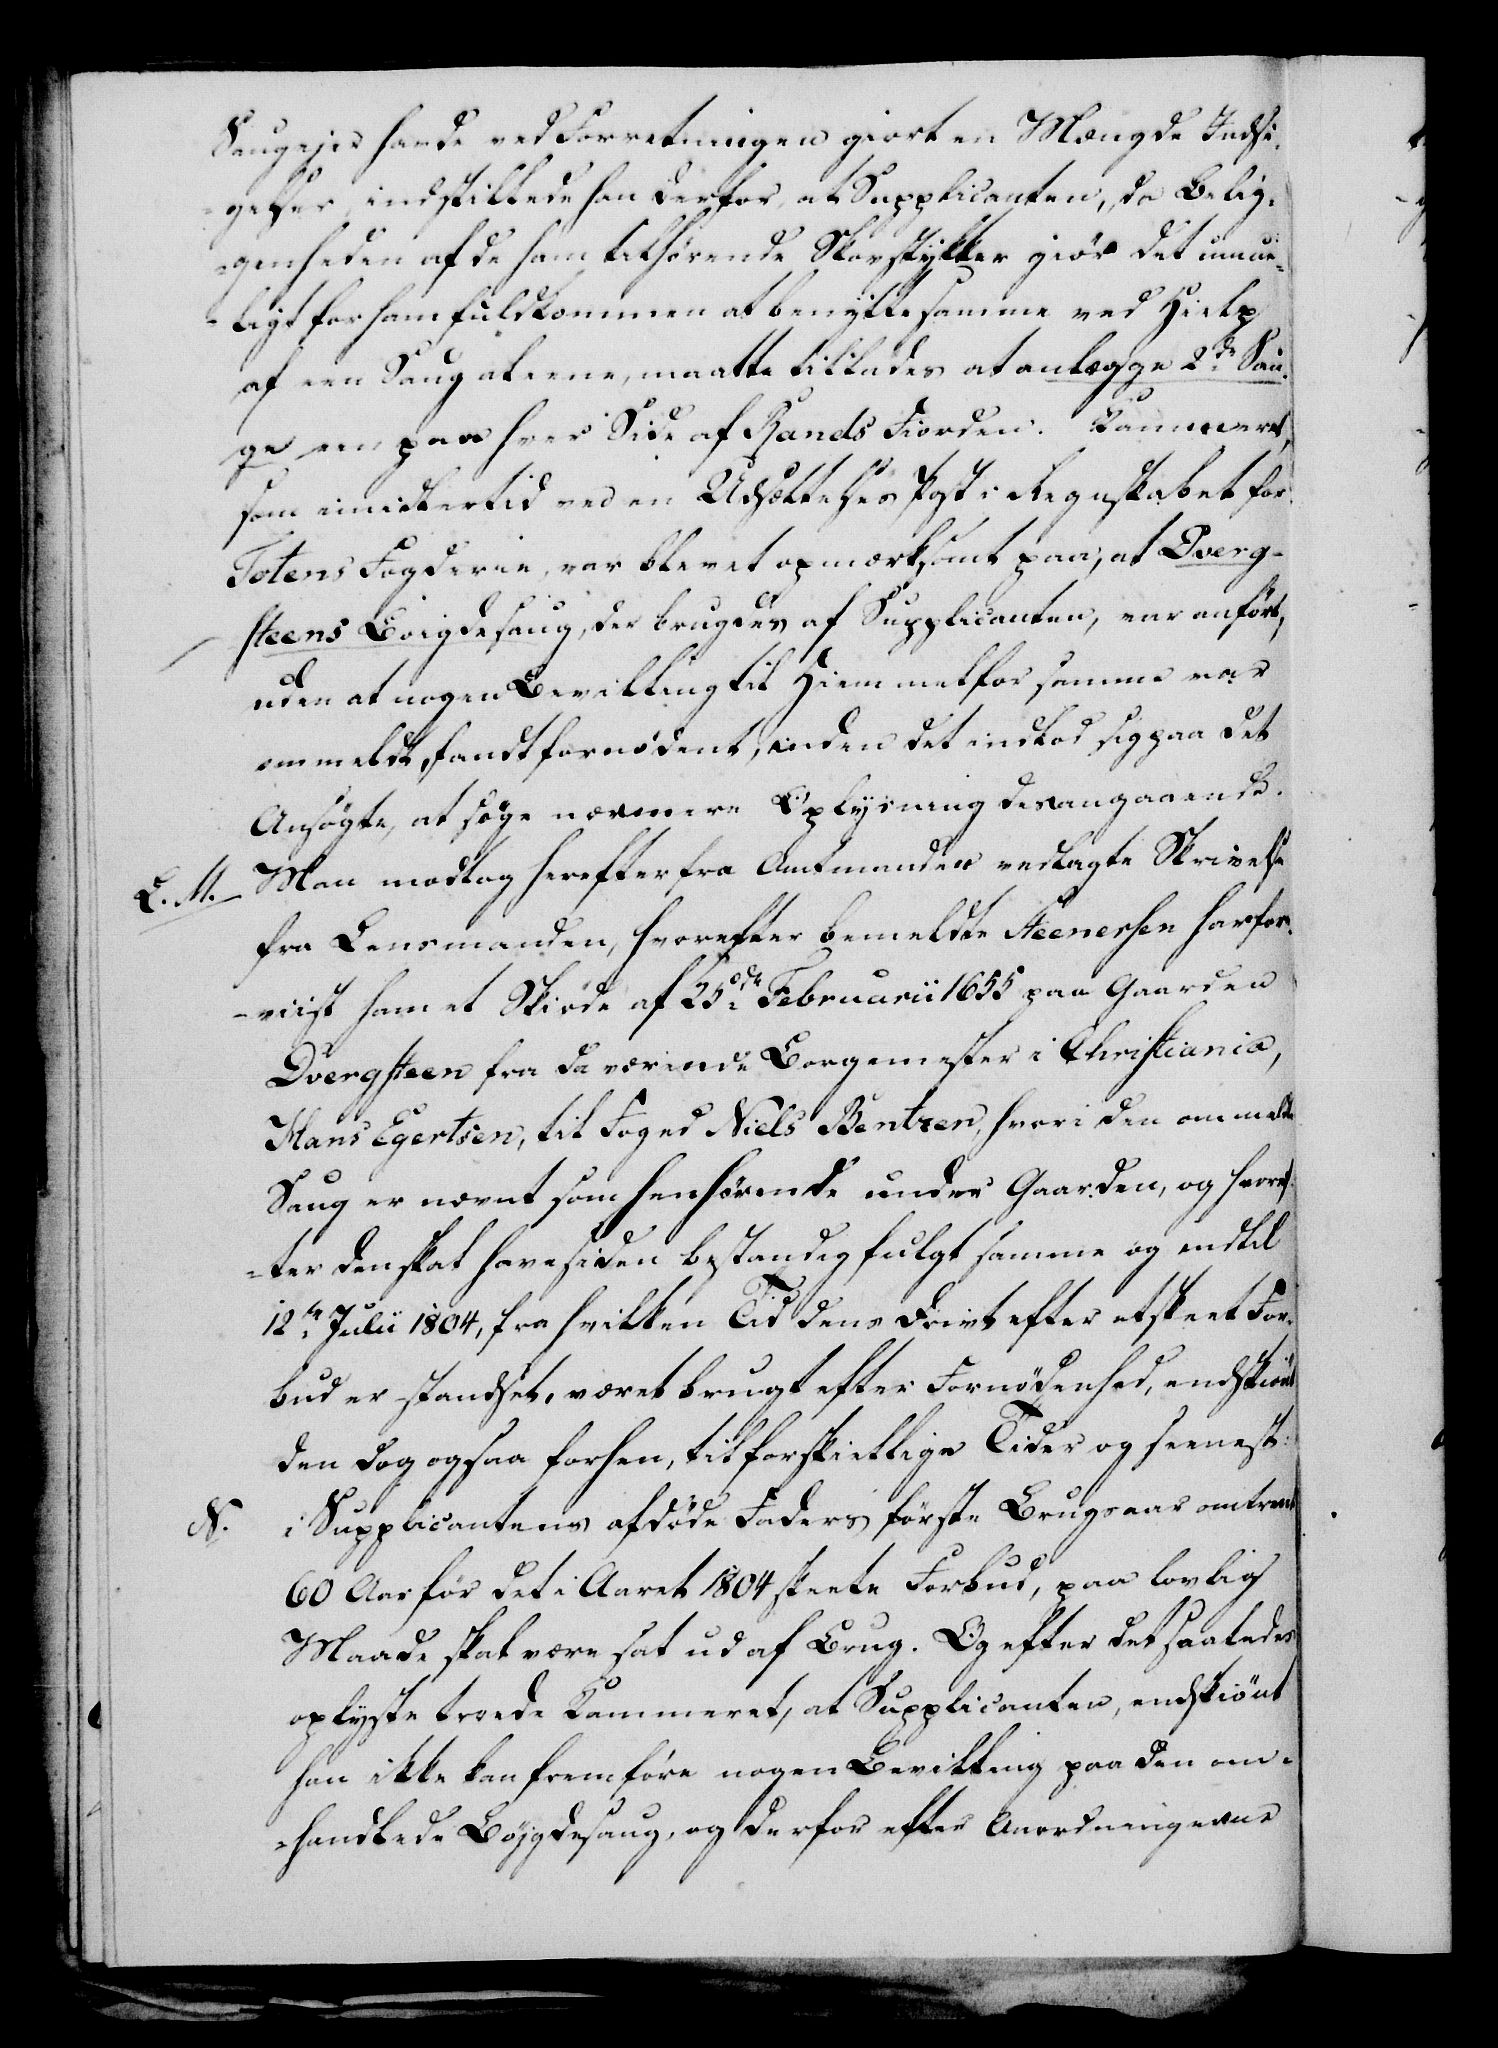 Saugejer havde ved Forretningen giort en Mængde Indsi-
-gelser, indstillede han derfor, at Supplicanten, da Belig-
-genheden af de ham tilhørende Skovstykker giör det umue-
-ligt for ham fuldkommen at benytte samme ved Hielp
af een Saug alene, maatte tillades at anlægge 2de Sau-
ge een paa hver Side af Rands Fiorden. Kammeret,
som imidlertid ved en Udsættelses Post i Regnskabet for
Totens Fogderie, var blevet opmærksomt paa, at Dverg-
steens Boigdesaug, der brugdes af Supplicanten, var anfört,
uden at nogen Bevilling til Hiemmel for samme var
ommeldt, fandt fornödent, inden det indlod sig paa det
Ansögte, at söge nærmere Oplysning desangaaende.
L. M. Man modtog herefter fra Amtmanden vedlagte Skrivelse
fra Lensmanden, hvorefter bemeldte Steenersen har for-
-viist ham et Skiöde af 25de Februarii 1655 paa Gaarden
Dvergsteen fra da værende Borgemester i Christiania,
Hans Egertsen, til Foged Niels Bentzen, hvori den ommeldte
Saug er nævnt som henhörende under Gaarden, og hvoref-
-ter den skal have siden bestandig fulgt samme og indtil
12te Julii 1804, fra hvilken Tid dens Drivt efter et skeet For-
bud er standset, været brugt efter Fornödenhed, endskiönt
den dog ogsaa forhen, til forskiellige Tider og seenest
N. i Supplicantens afdöde Faders förste Brugsaar omtrent
60 Aar för det i Aaret 1804 skeete Forbud, paa lovlig
Maade skal være sat ud af Brug. Og efter det saaledes
oplyste troede Kammeret, at Supplicanten, endskiönt
han ikke kan fremföre nogen Bevilling paa den om-
-handlede Böjgdesaug, og derfor efter Anordningerne